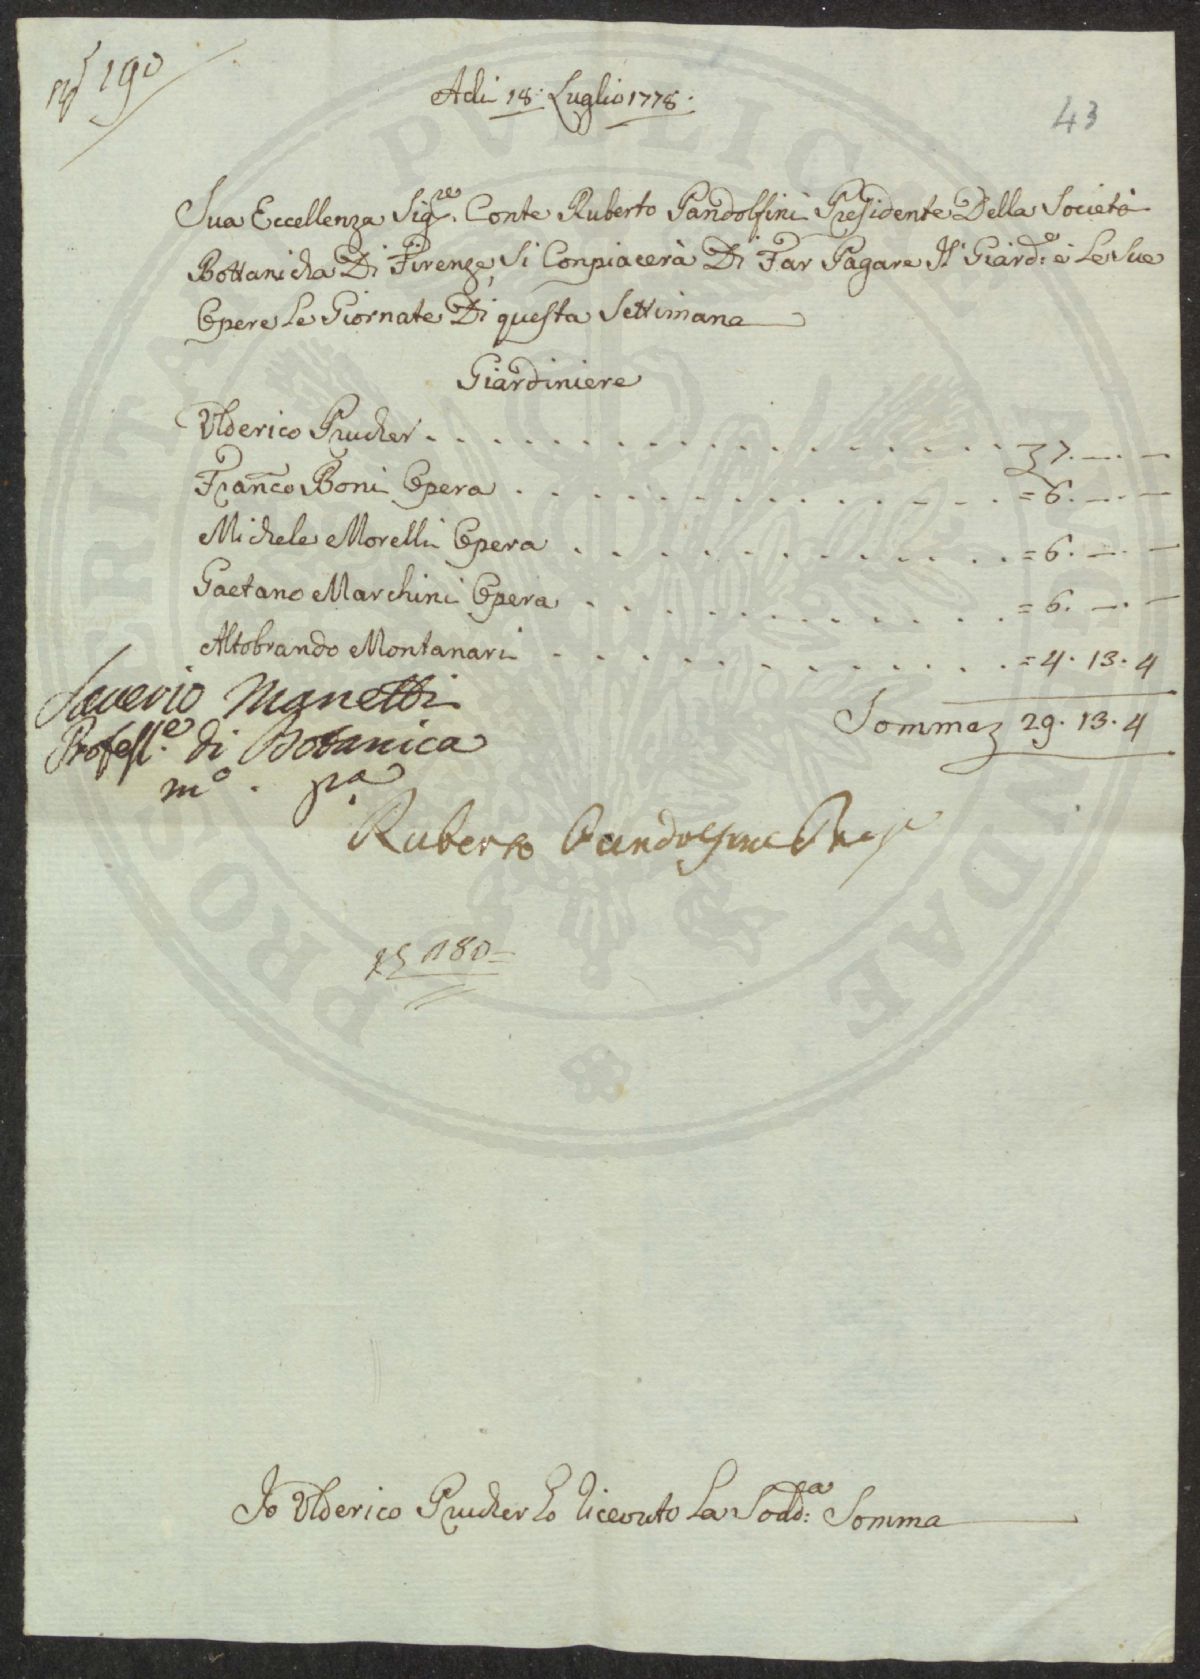 190
43
Adi 18: Luglio 1778:
Sua Eccellenza Sig.re Conte Ruberto Pandolfini Presidente Della Società
Bottanicha Di Firenze, Si Conpiacerà Di Far Pagare Il Giard.e e Le Sue
Opere Le Giornate Di questa Settimana
Giardiniere
Ulderico Prucher 7. —. —
Fran.co Boni Opera = 6. —. —
Michele Morelli Opera = 6. —. —
Gaetano Marchini Opera = 6. —. —
Altobrando Montanari = 4. 13. 4
Somma 29. 13. 4
Saverio Manetti
Profess.e di Botanica
m.o p.a
Ruberto Pandolfini Pres
180
Io Ulderico Prucher ho ricevuto La Sodd.a Somma
PROSPERITATI PVBLICAE AVGENDAE